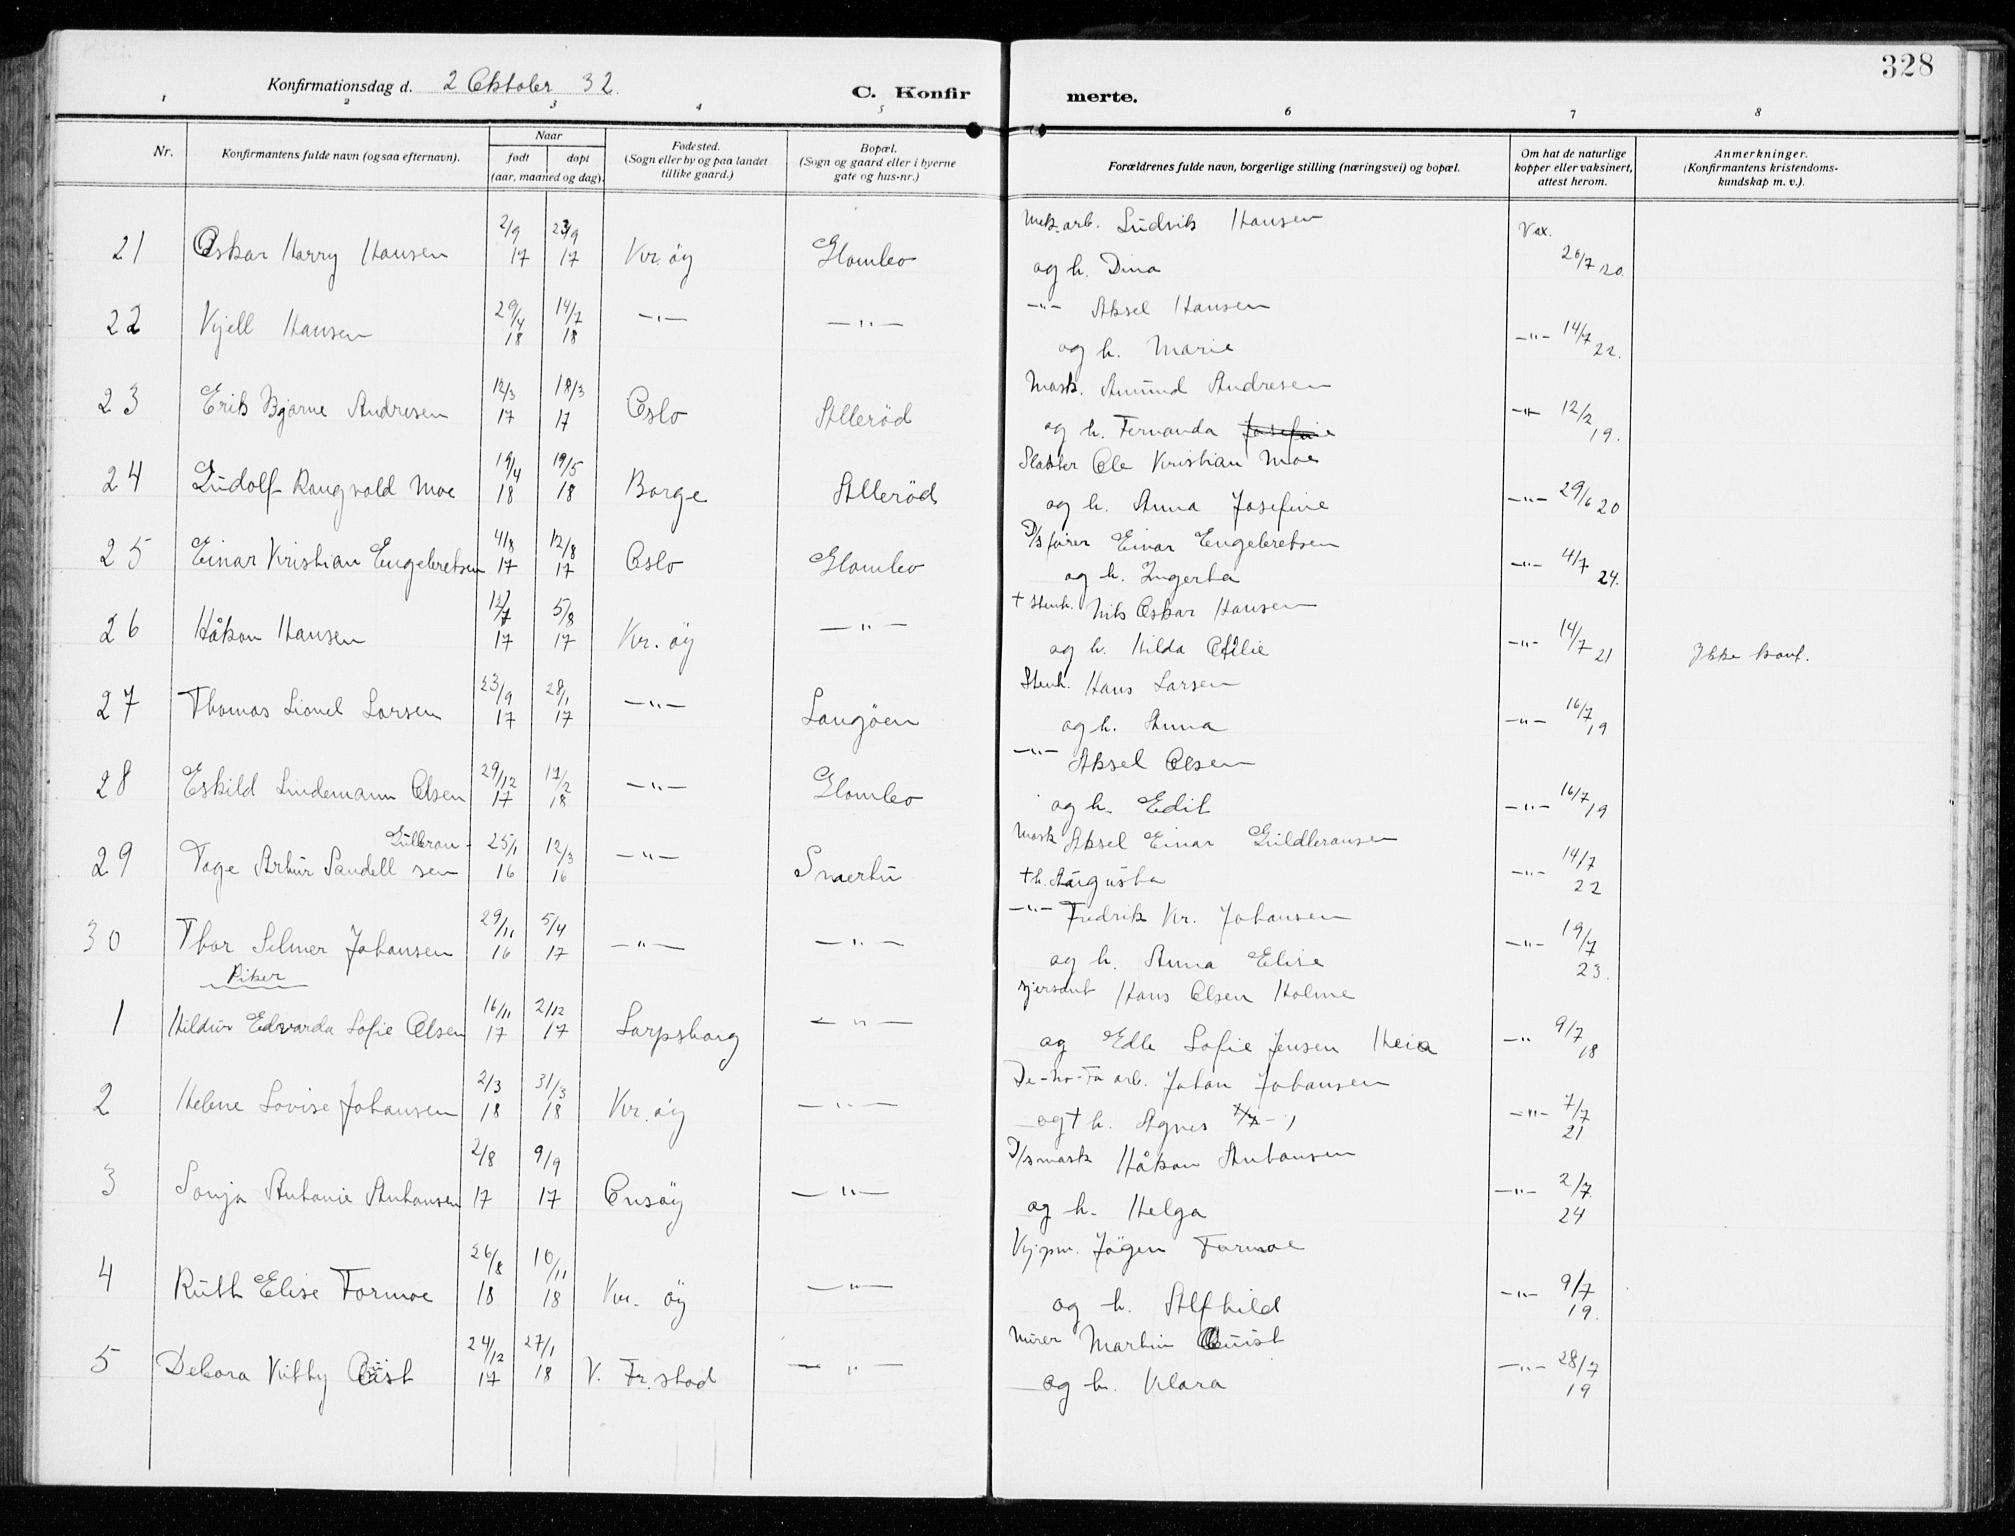 328
Konfirmationsdag d. 2 Oktober 32.
C. Konfirmerte.
1 2 3 4 5 6 7 8
Nr.
Konfirmantens fulde navn (ogsaa efternavn).
Naar
født døpt
(aar, maaned og dag).
Fødested.
(Sogn eller by og paa landet
tillike gaard.)
Bopæl.
(Sogn og gaard eller i byerne
gate og hus-nr.)
Forældrenes fulde navn, borgerlige stilling (næringsvei) og bopæl.
Om hat de naturlige
kopper eller vaksinert,
attest herom.
Anmerkninger.
(Konfirmantens kristendoms-
kundskap m. v.).
21 Oskar Harry Hansen 2/9 17 23/9 17 Kr. öy Glombo Mek. arb. Ludvik Hansen
og h. Dina Vax. 26/7 20.
22 Kjell Hansen 29/4 18 14/7 18 -"- -"- -"- Aksel Hansen
og h. Marie -"- 14/7 22.
23 Erik Bjarne Andresen 12/3 17 18/3 17 Oslo Allerød Mask. Amund Andresen
og h. Fernanda Josefine -"- 12/2 19.
24 Ludolf Rangvald Moe 19/4 18 19/5 18 Borge Allerød Slakter Ole Kristian Moe
og h. Anna Josefine -"- 29/6 20
25 Einar Kristian Engebretsen 4/8 17 12/8 17 Oslo Glombo D/s fører Einar Engebretsen
og h. Ingerta -"- 4/7 24.
26 Håkon Hansen 12/7 17 5/8 17 Kr. öy -"- + Stenh. Nils Oskar Hansen
og h. Hilda Otilie -"- 14/7 21 Ikke konf.
27 Thomas Lionel Larsen 23/9 17 28/1 17 -"- Langöen Stenh. Hans Larsen
og h. Anna -"- 16/7 19
28 Eskild Lindemann Olsen 29/12 17 17/2 18 -"- Glombo -"- Aksel Olsen
og h. Edit -"- 16/7 19
29 Tage Arthur Sandell Gulbransen 25/1 16 12/3 16 -"- Smertu Mask Aksel Einar Guldbransen
+ h. Augusta -"- 14/7 22
30 Thor Selmer Johansen 29/11 16 5/4 17 -"- -"- -"- Fredrik Kr. Johansen
og h. Anna Elise -"- 19/7 23.
Piker
1 Hildur Edvarda Sofie Olsen 16/11 17 2/12 17 Sarpsborg -"- sjersant Hans Olsen Holme
og Edle Sofie Jensen Heia -"- 9/7 18
2 Helene Lovise Johansen 2/3 18 31/3 18 Kr. öy -"- De-no-Fa arb. Johan Johansen
og + h. Agnes -"- 7/7 21
3 Sonja Antonie Antonsen 2/8 17 9/9 17 Onsöy -"- D/s mask Håkon Antonsen
og h. Helga -"- 2/7 24
4 Ruth Elise Formoe 26/8 18 10/11 18 Kr. öy -"- Kjøpm. Jögen Formoe
og h. Alfhild -"- 9/7 19.
5 Debora Kitty Quist 24/12 17 27/1 18 V. Fr. stad -"- Murer Martin Quist
og h. Klara -"- 28/7 19